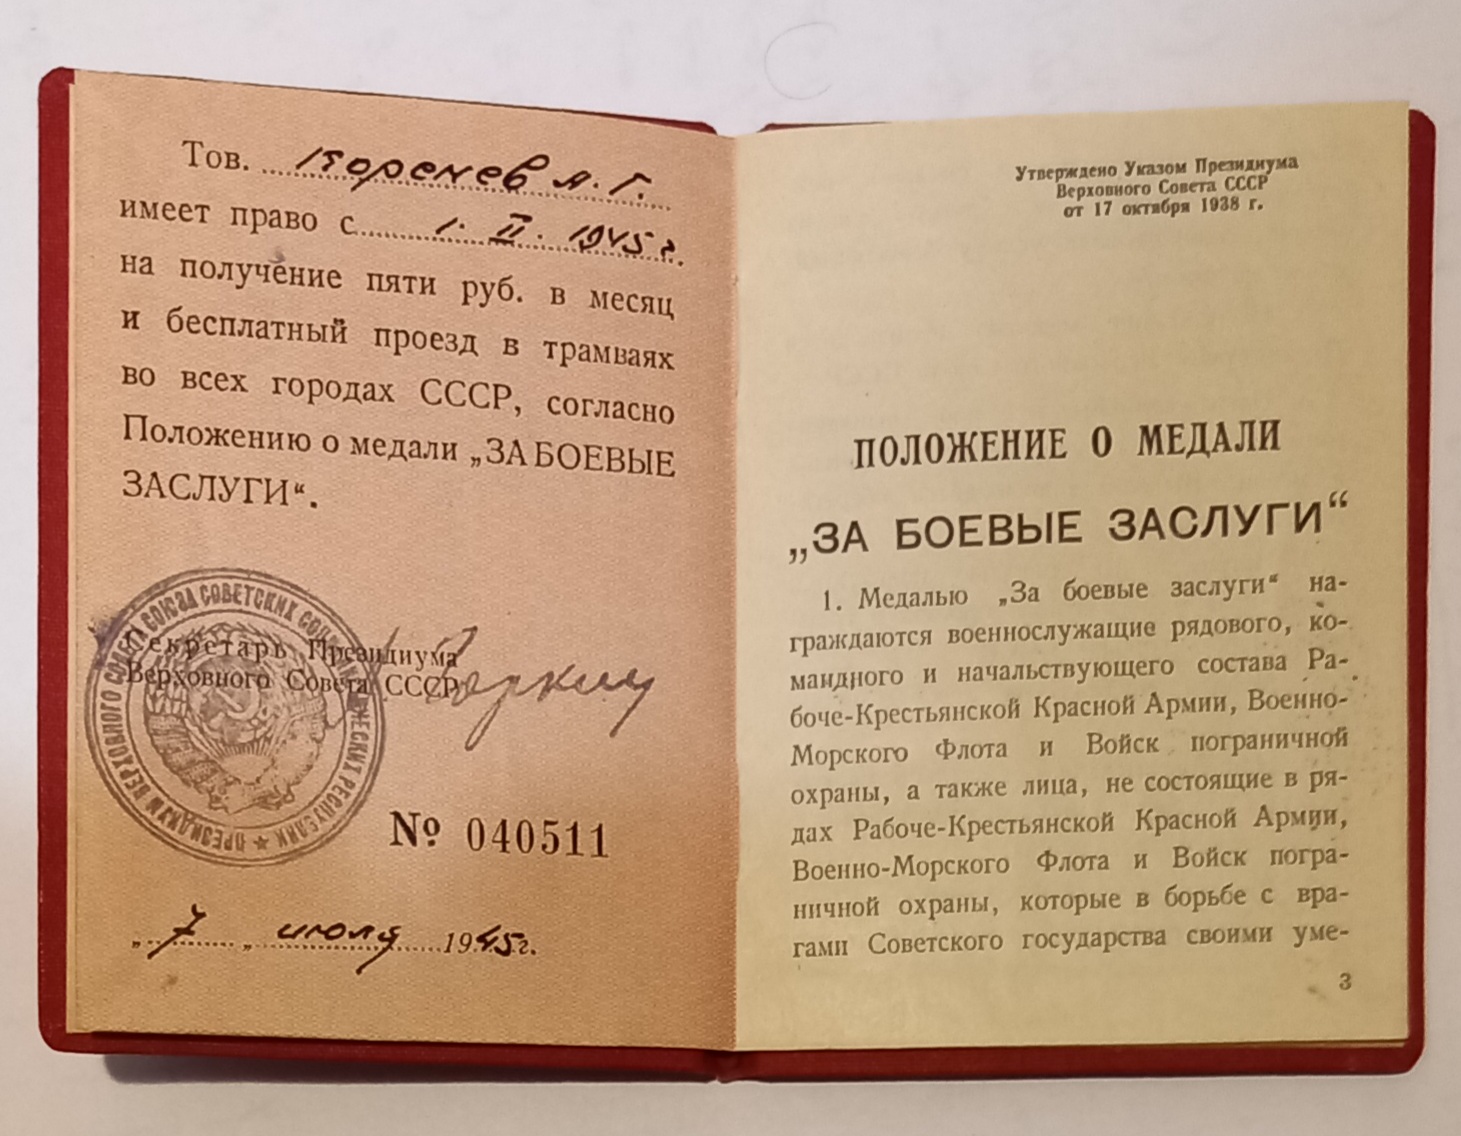 Тов. Коренев А. Г.
имеет право с 1. II. 1945 г.
на получение пяти руб. в месяц
и бесплатный проезд в трамваях
во всех городах СССР, согласно
Положению о медали „ЗА БОЕВЫЕ
ЗАСЛУГИ“.
Секретарь Президиума
Верховного Совета СССР
Горкин
ПРЕЗИДИУМ ВЕРХОВНОГО СОВЕТА СОЮЗА СОВЕТСКИХ СОЦИАЛИСТИЧЕСКИХ РЕСПУБЛИК
№ 040511
„ 7 „ июля 1945 г.
Утверждено Указом Президиума
Верховного Совета СССР
от 17 октября 1938 г.
ПОЛОЖЕНИЕ О МЕДАЛИ
„ЗА БОЕВЫЕ ЗАСЛУГИ“
1. Медалью „За боевые заслуги“ на-
граждаются военнослужащие рядового, ко-
мандного и начальствующего состава Ра-
боче-Крестьянской Красной Армии, Военно-
Морского Флота и Войск пограничной
охраны, а также лица, не состоящие в ря-
дах Рабоче-Крестьянской Красной Армии,
Военно-Морского Флота и Войск погра-
ничной охраны, которые в борьбе с вра-
гами Советского государства своими уме-
3